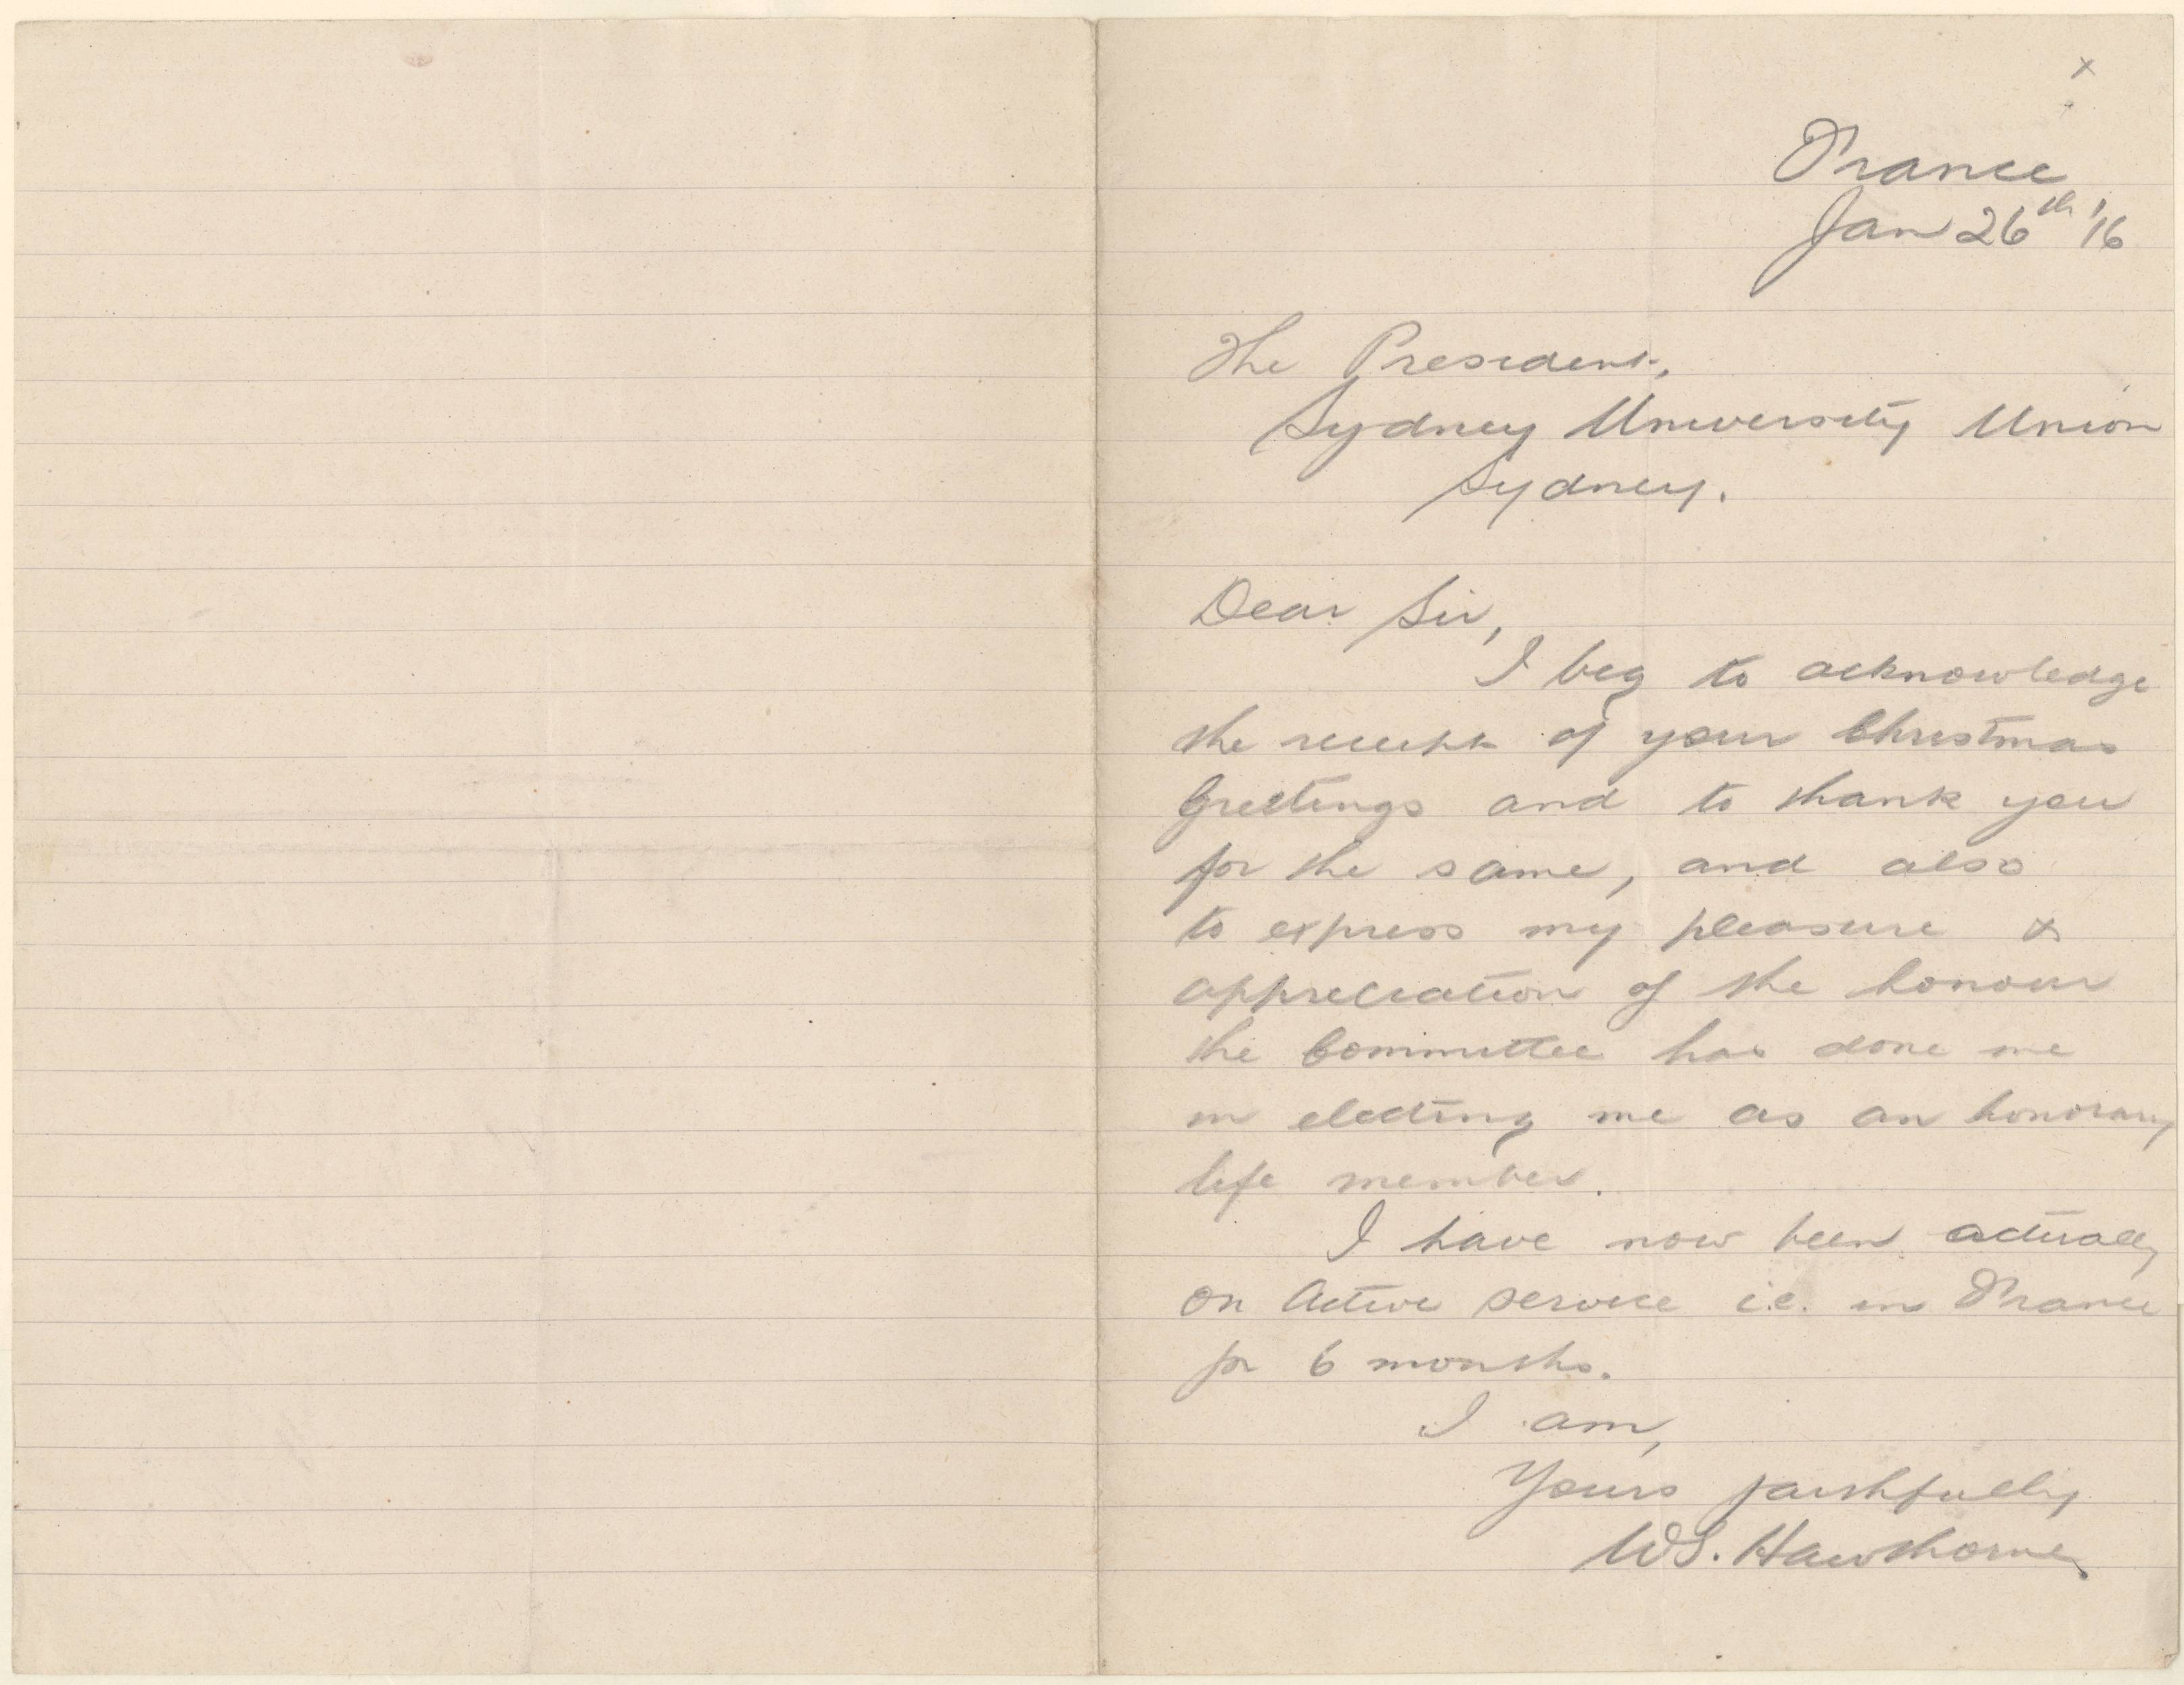 x
France
Jan 26th '16
The President,
Sydney University Union
Sydney.
Dear Sir,
I beg to acknowledge
the receipt of your Christmas
Greetings and to thank you
for the same, and also
to express my pleasure &
appreciation of the honour
the Committee has done me
in electing me as an honorary
life member.
I have now been actually
on Active service i.e. in France
for 6 months.
I am,
Yours faithfully
WS. Hawthorne